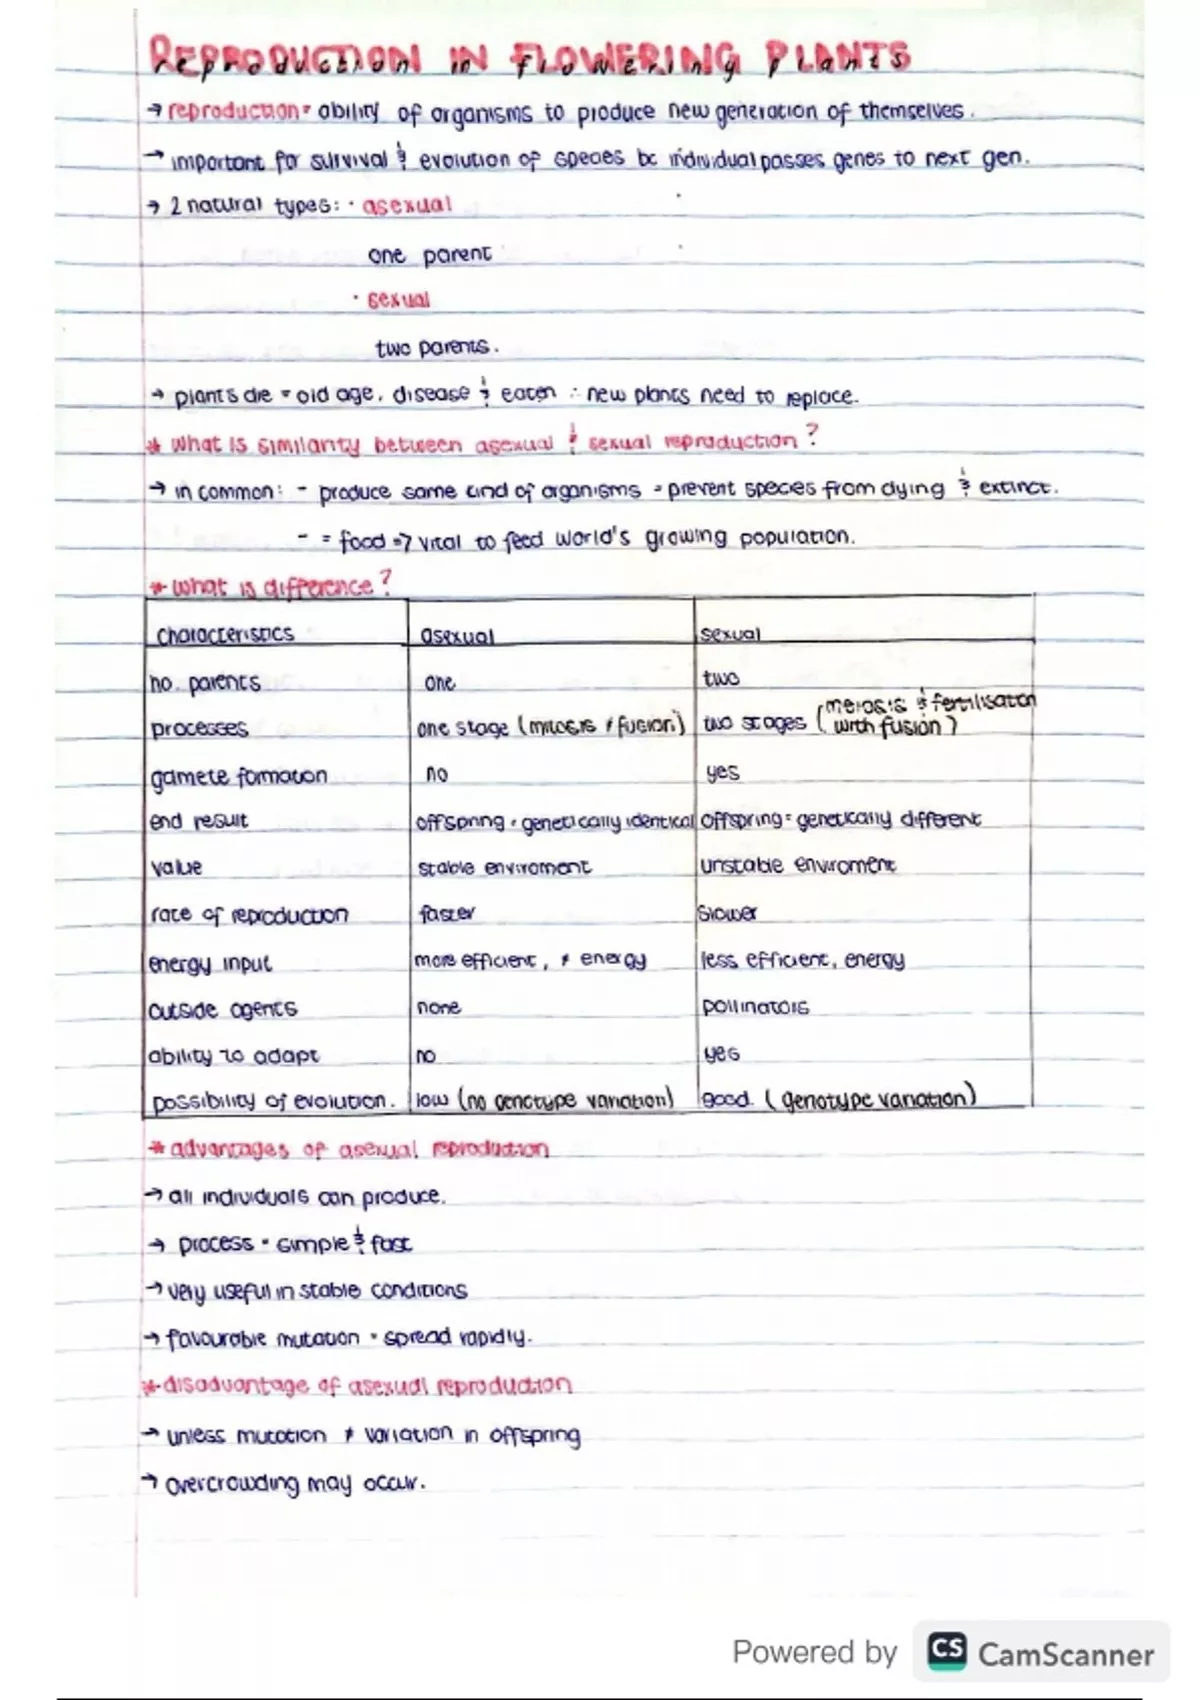 REPRODUCTION IN FLOWERING PLANTS
→ reproduction = ability of organisms to produce new generation of themselves.
→ important for survival & evolution of species bc individual passes genes to next gen.
→ 2 natural types: · asexual
one parent
· sexual
two parents.
→ plants die = old age, disease & eaten ∴ new plants need to replace.
* what is similarity between asexual & sexual reproduction?
→ in common: - produce same kind of organisms = prevent species from dying & extinct.
- = food => vital to feed world's growing population.
* what is difference?
characteristics asexual sexual
no. parents one two
processes one stage (mitosis ≠ fusion) two stages (meiosis & fertilisation with fusion)
gamete formation no yes
end result offspring = genetically identical offspring = genetically different
value stable enviroment unstable enviroment
rate of reproduction faster slower
energy input more efficient, ≠ energy less efficient, energy
outside agents none pollinators
ability to adapt no yes
possibility of evolution. low (no genotype variation) good. (genotype variation)
* advantages of asexual reproduction
→ all individuals can produce.
→ process = simple & fast
→ very useful in stable conditions
→ favourable mutation = spread rapidly.
* disadvantage of asexual reproduction
→ unless mutation ≠ variation in offspring
→ overcrowding may occur.
Powered by CS CamScanner